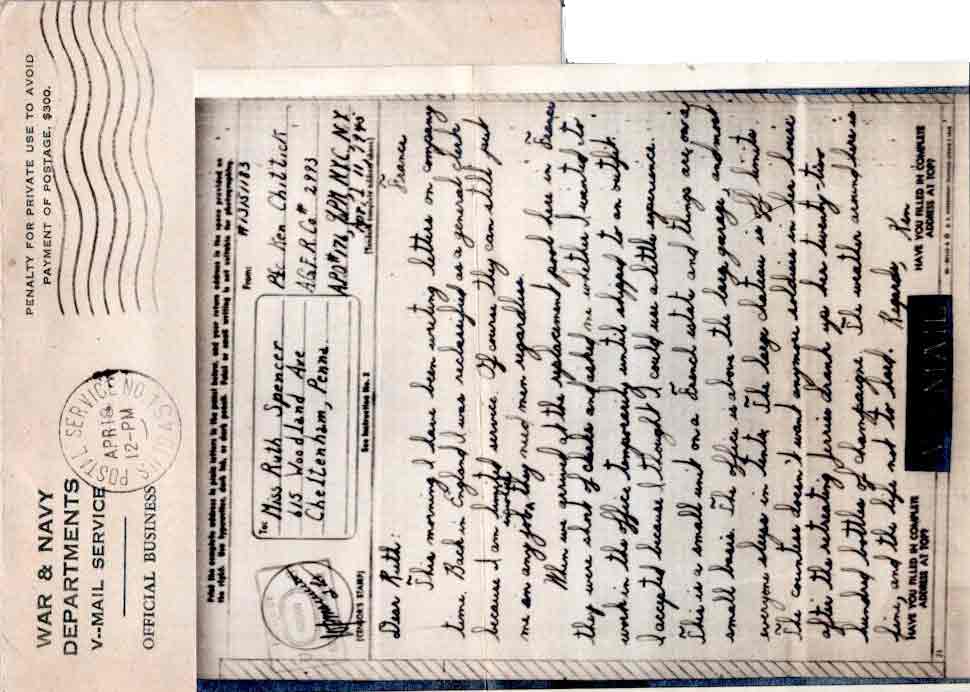 WAR & NAVY
DEPARTMENTS
V-MAIL SERVICE
OFFICIAL BUSINESS
POSTAL SERVICE NO
APR 18
12-PM
PENALTY FOR PRIVATE USE TO AVOID
PAYMENT OF POSTAGE, $300.
Print the complete address in plain letters in the panel below, and your return address in the space provided on
the right. Use typewriter, dark ink, or dark pencil. Faint or small writing is not suitable for photographing.
(CENSOR'S STAMP)
To:
Miss Ruth Spencer
615 Woodland Ave
Cheltenham, Penna.
See Instruction No. 2
From:
Pfc. Ken Chittick
AGF.R.Co# 2493
APO# 176, %PM, NYC, NY
(Sender's complete address above)
Dear Ruth:
France
This morning I have been writing letters on company
time. Back in England I was reclassified as a general clerk
because I am limited service. Of course they can still put
me on any job they need men regardless.
When we arrived at the replacement pool here in France
they were short of clerks and asked me whether I wanted to
work in the office temporarily until shipped to an outfit.
I accepted because I thought I could use a little experience.
This is a small unit on a French estate and things are on a
small basis. The office is above the large garage, and most
everyone sleeps in tents. The large chateau is off limits.
The Countess doesn't want anymore soldiers in her house
after the retreating Jerries drank up her twenty-two
hundred bottles of champagne. The weather around here is
fine, and the life not to hard.
Regards,
Ken
HAVE YOU FILLED IN COMPLETE
ADDRESS AT TOP?
V-MAIL
HAVE YOU FILLED IN COMPLETE
ADDRESS AT TOP?